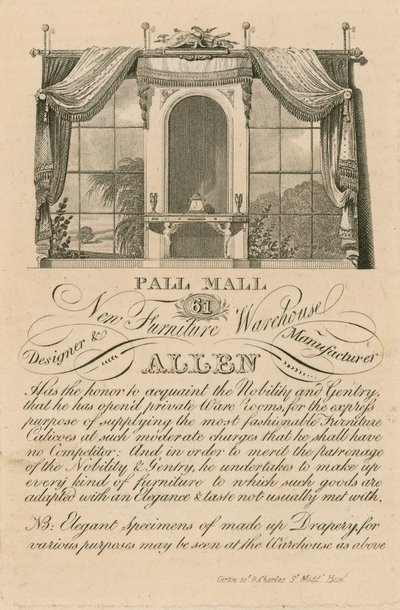 PALL MALL
61
New Furniture Warehouse
Designer & Manufacturer
ALLEN
Has the honor to acquaint the Nobility and Gentry,
that he has open'd private Ware Rooms, for the express
purpose of supplying the most fashionable Furniture
Calicoes at such moderate charges that he shall have
no Competitor: And in order to merit the patronage
of the Nobility & Gentry, he undertakes to make up
every kind of furniture to which such goods are
adapted with an Elegance & taste not usually met with.
NB: Elegant Specimens of made up Drapery, for
various purposes may be seen at the Warehouse as above
8, Charles St. Middx. Hosp.